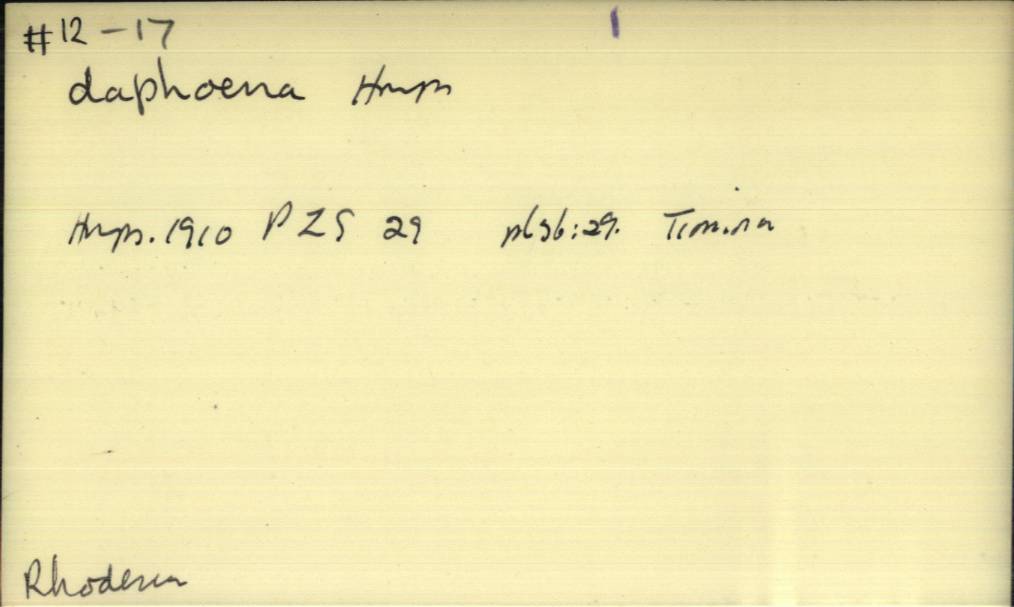 #12-17
daphoena Hmps
Hmps. 1910 PZS 29 pl36:29. Timina
Rhodesia